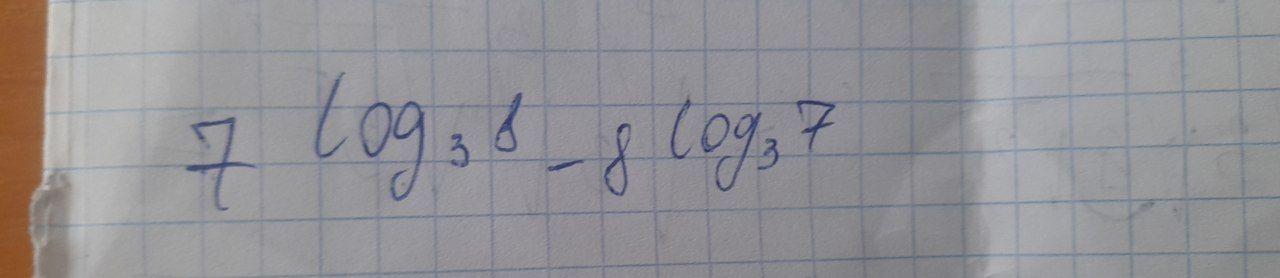 7 log₃ 8 - 8 log₃ 7